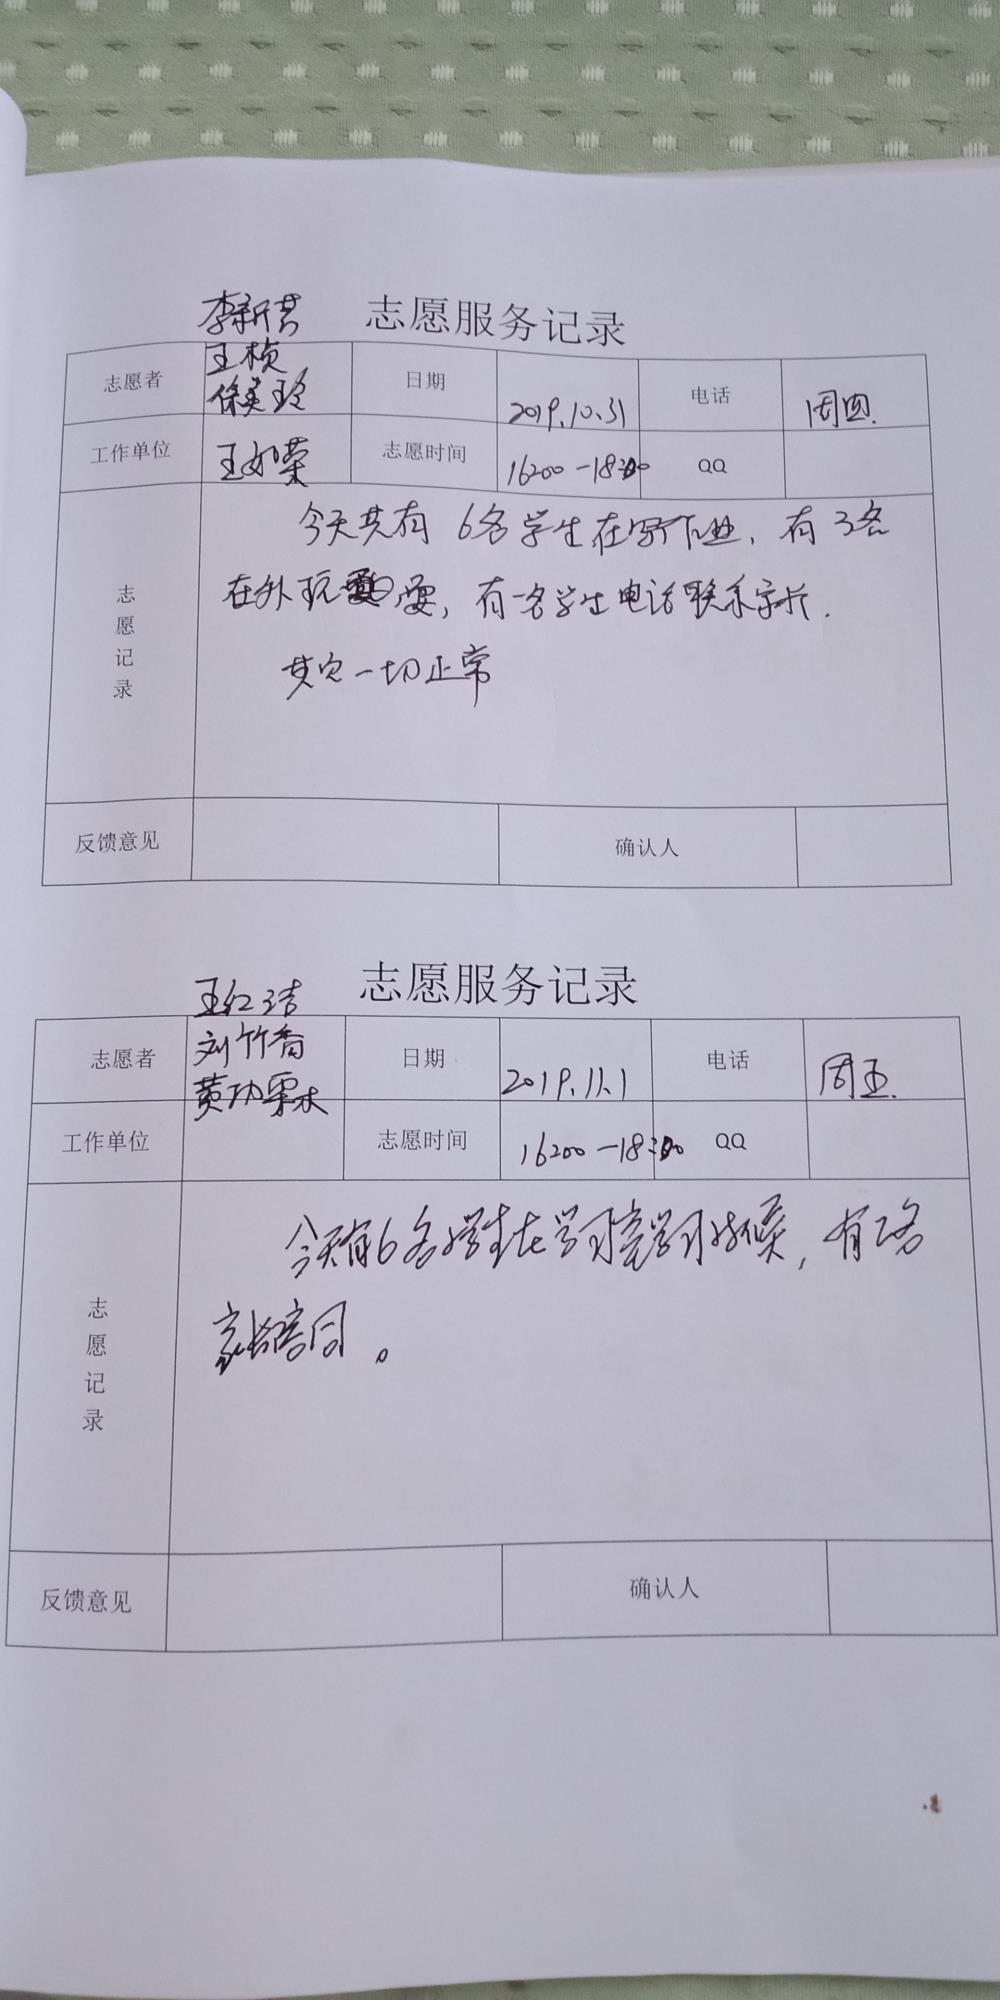 李新芸 志愿服务记录
志愿者 王桢 徐美玲 日期 2019.10.31 电话 周四.
工作单位 王如荣 志愿时间 16:00—18:00 QQ
志愿记录
今天共有6名学生在写作业，有3名
在外玩耍，有一名学生电话联系家长.
其它一切正常
反馈意见 确认人
王红洁 志愿服务记录
志愿者 刘竹香 黄功栗 日期 2019.11.1 电话 周五.
工作单位 志愿时间 16:00—18:00 QQ
志愿记录
今天有6名学生在学习室学习，有2名
家长陪同。
反馈意见 确认人